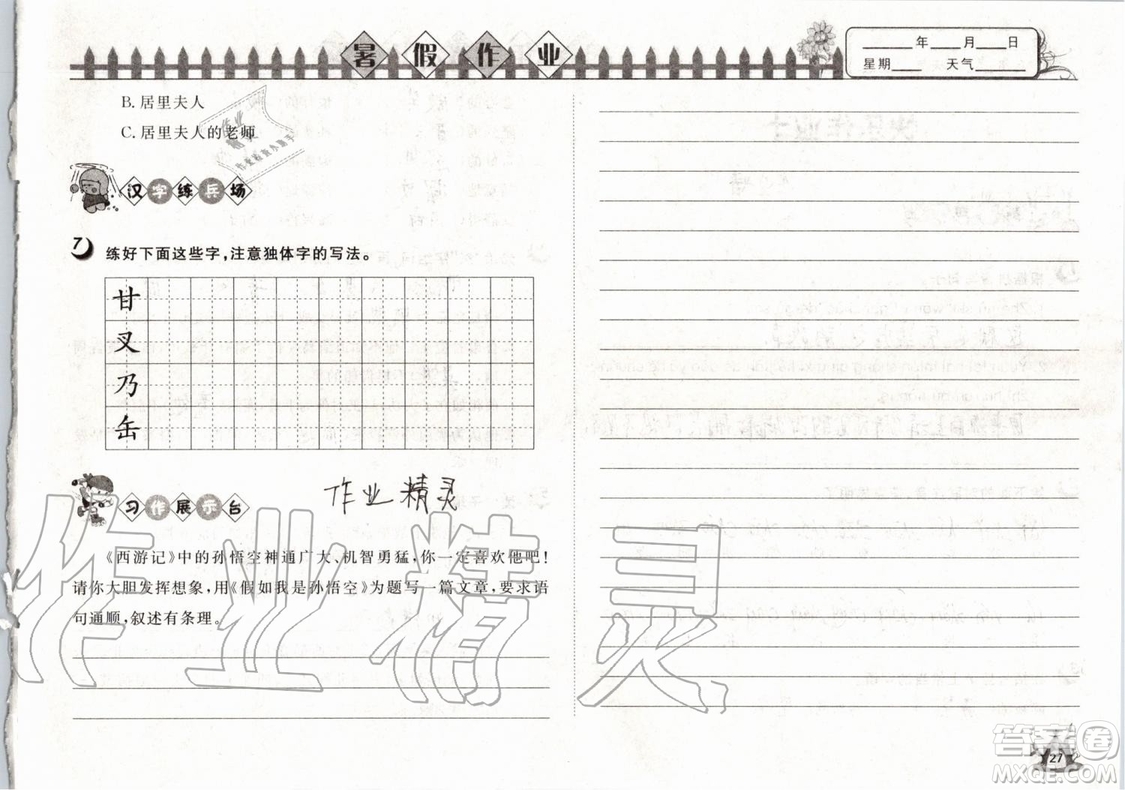 暑假作业
____年____月____日
星期____ 天气____
B. 居里夫人
C. 居里夫人的老师
汉字练兵场
7 练好下面这些字，注意独体字的写法。
甘
叉
乃
缶
作业精灵
习作展示台
《西游记》中的孙悟空神通广大、机智勇猛，你一定喜欢他吧！
请你大胆发挥想象，用《假如我是孙悟空》为题写一篇文章，要求语
句通顺，叙述有条理。
作业精灵
答案圈
MXQE.COM
27